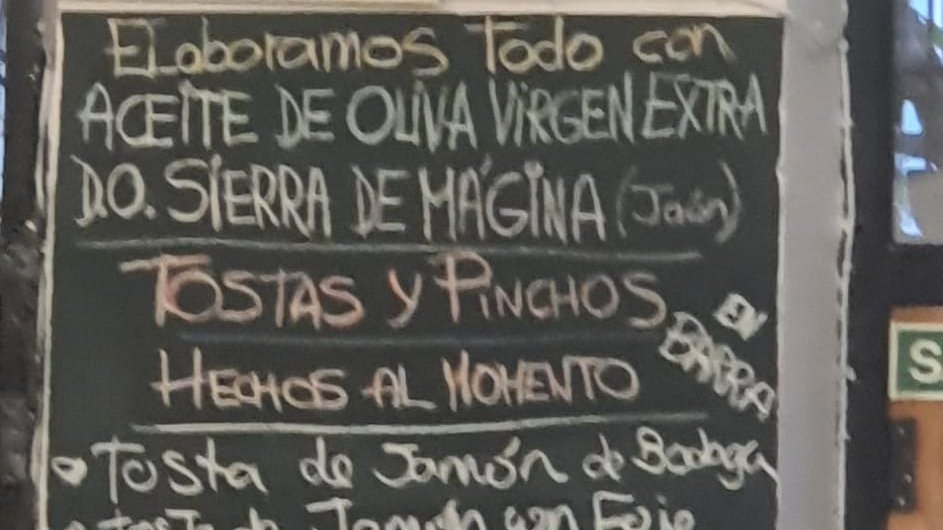 Elaboramos Todo con
ACEITE DE OLIVA VIRGEN EXTRA
D.O. SIERRA DE MÁGINA (Jaén)
TOSTAS Y PINCHOS
EN BARRA
HECHOS AL MOMENTO
• Tosta de Jamón de Bodega
• Tosta de Jamón con Foie
S